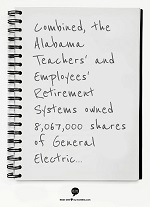 Combined, the
Alabama
Teachers' and
Employees'
Retirement
Systems owned
8,067,000 shares
of General
Electric...